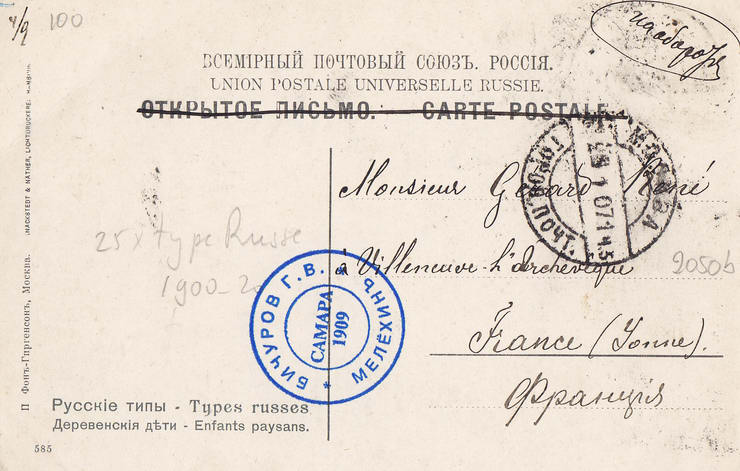 4/9
100
наоборотъ
ВСЕМІРНЫЙ ПОЧТОВЫЙ СОЮЗЪ. РОССІЯ.
UNION POSTALE UNIVERSELLE RUSSIE.
ОТКРЫТОЕ ПИСЬМО. CARTE POSTALE
МОСКВА
25 1 07
ПОЧТ.
Monsieur Gérard René
à Villeneuve-l'archevêque
France (Yonne).
Франція
2050b
25 x type Russe
1900-20
БИЧУРОВ Г. В. & МЕЛЁХИНЪ *
САМАРА
1909
Русскіе типы - Types russes
Деревенскія дѣти - Enfants paysans.
585
П Фонъ-Гиргенсонъ, Москва.
KNACKSTEDT & NÄTHER, LICHTDRUCKEREI, HAMBURG.